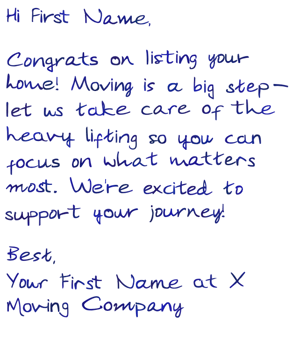 Hi First Name,
Congrats on listing your
home! Moving is a big step—
let us take care of the
heavy lifting so you can
focus on what matters
most. We're excited to
support your journey!
Best,
Your First Name at X
Moving Company